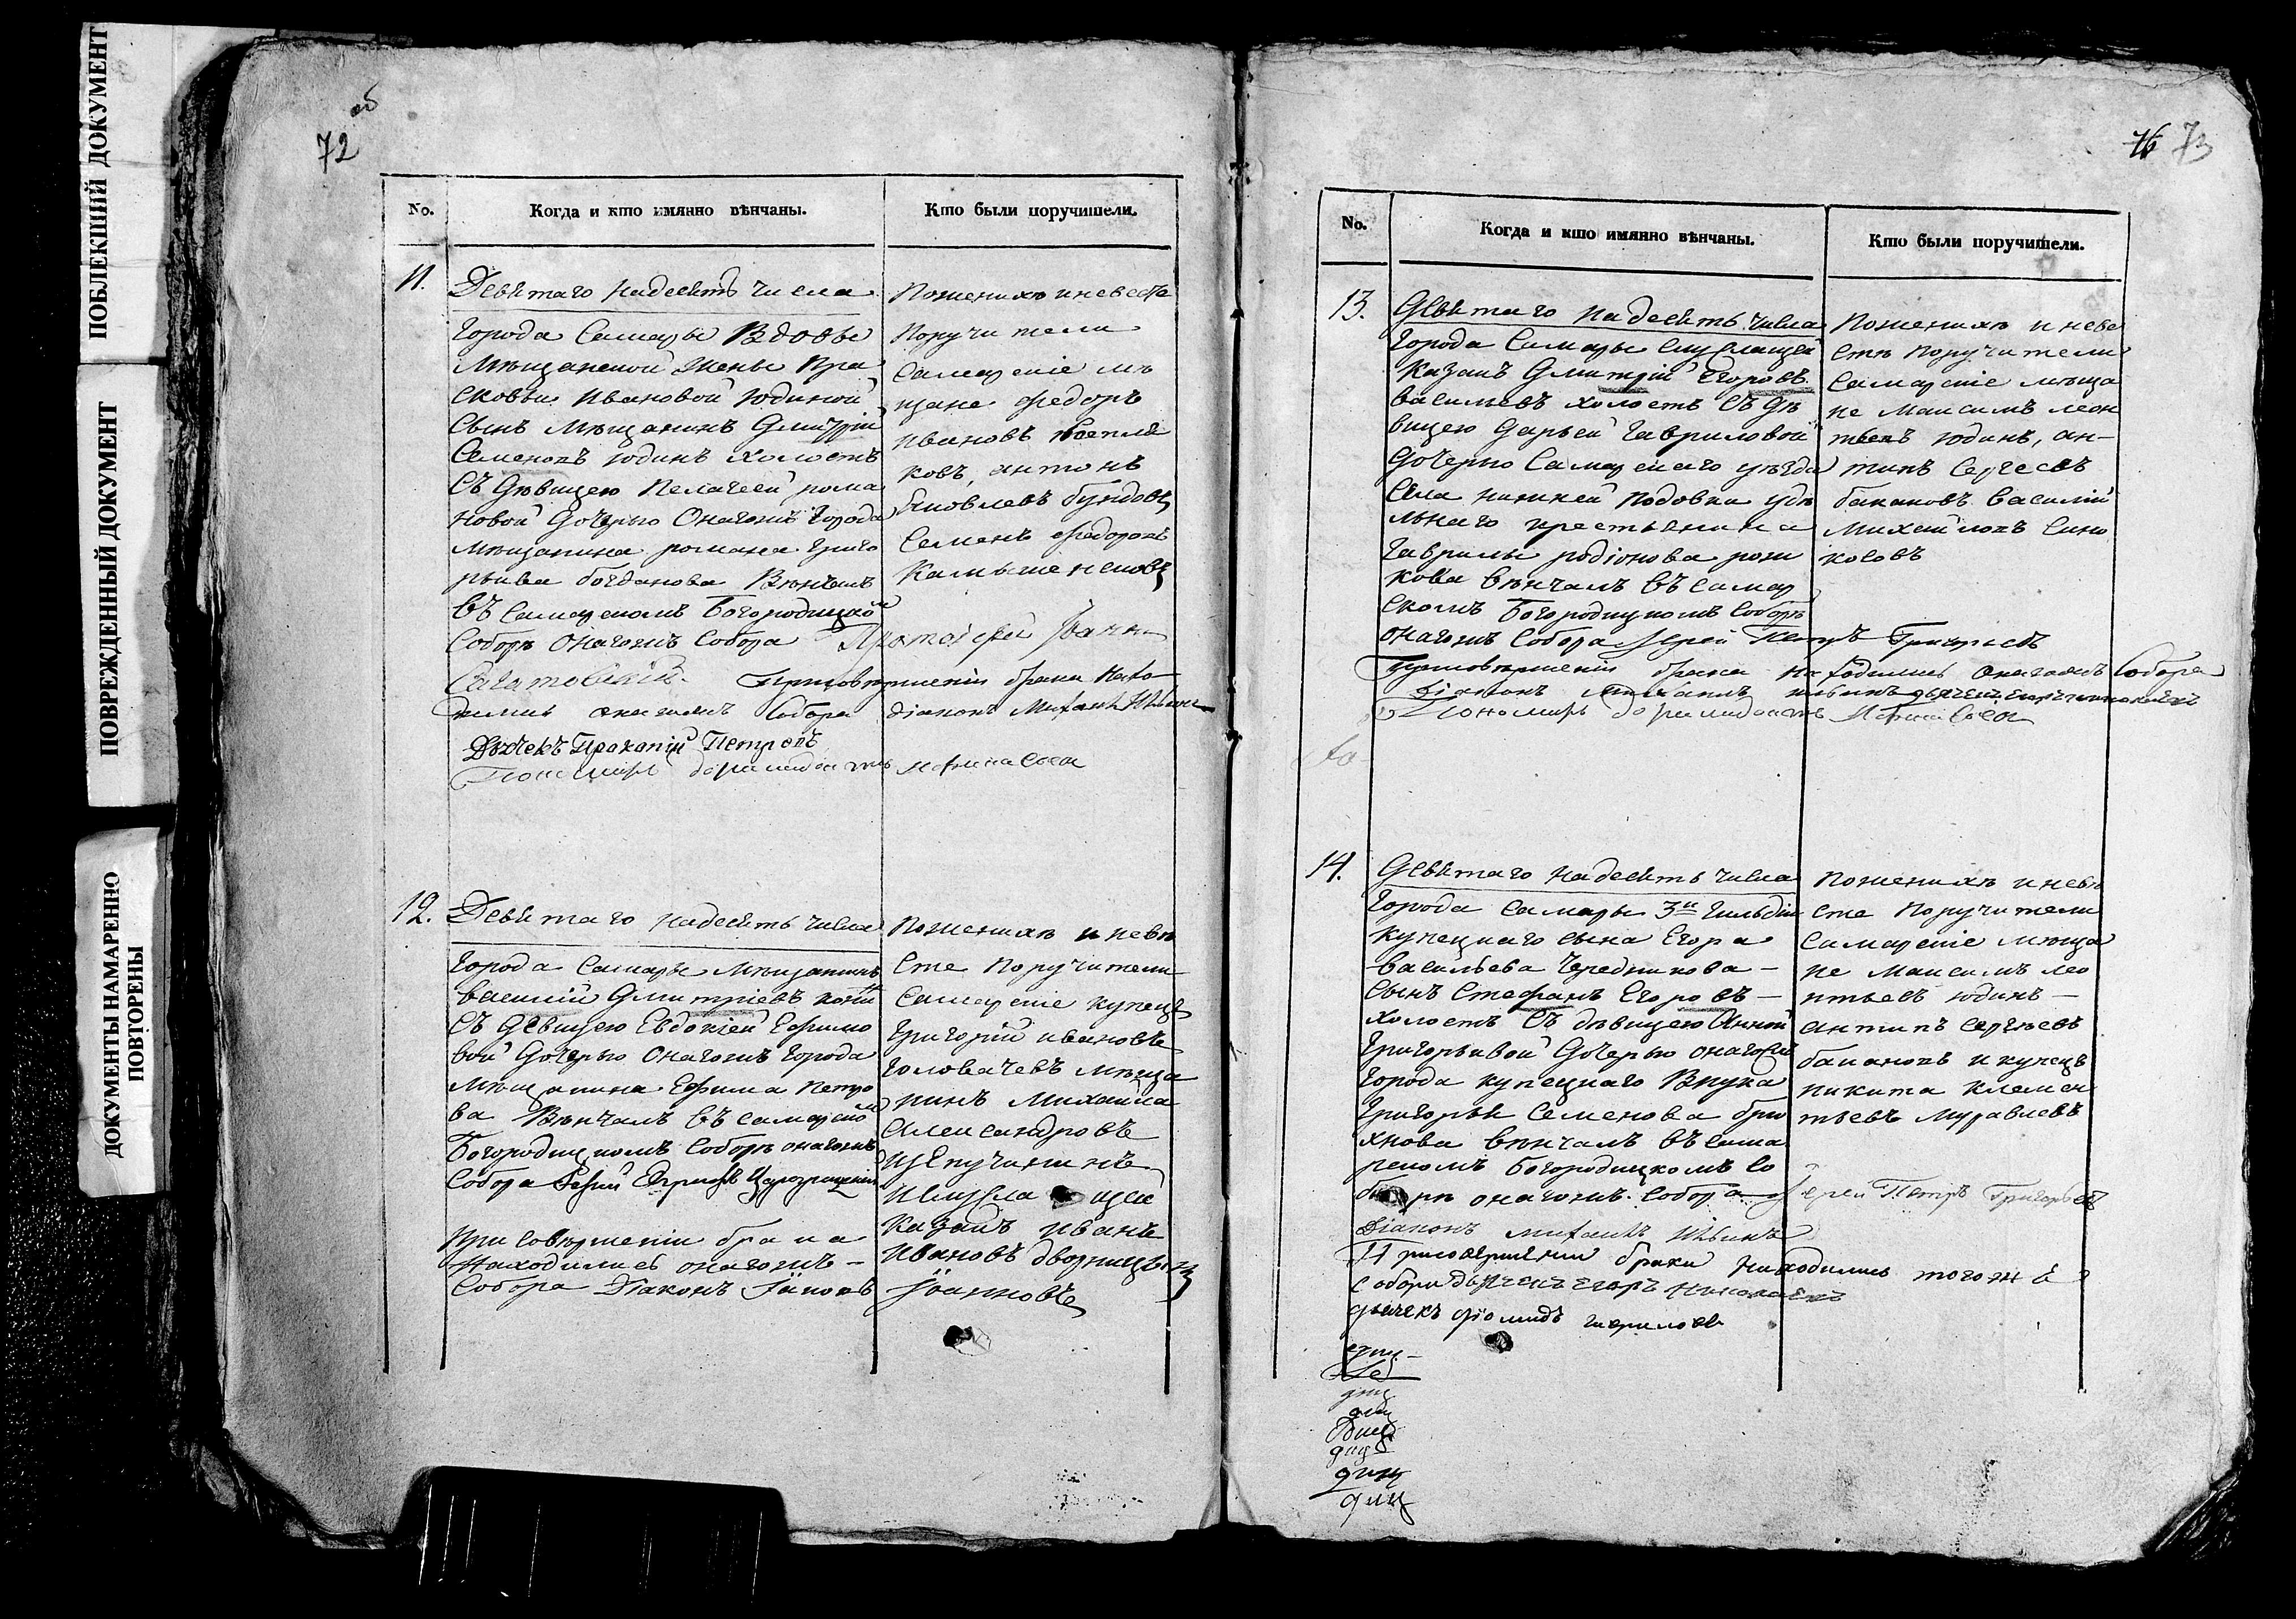 ПОБЛЕКШИЙ ДОКУМЕНТ
ПОВРЕЖДЕННЫЙ ДОКУМЕНТ
ДОКУМЕНТЫ НАМАРЕННО
ПОВТОРЕНЫ
об
72
No.
Когда и кто имянно вѣнчаны.
Кто были поручители.
11.
Девятаго надесять числа
Города Самары Вдовы
Мѣщанской Жены Пра
сковьи Ивановой Юдиной
Сынъ Мѣщанинъ Дмитрій
Семеновъ Юдинъ холостъ
Съ Дѣвицею Пелагеей рома
новой Дочерью Онагожъ города
мѣщанина романа Григо
рьива богданова Вѣнчалъ
въ Самарскомъ Богородицком
Соборѣ Онагожъ Собора Протоіерей Іоаннъ
При совершеніи брака нахо
дились онагожъ Собора діаконъ Михаилъ Ильинъ
Дьячекъ Прокопій Петровъ
Пономарь
По женихѣ и невестѣ
Поручители
Самарскіе мѣ
щане Федоръ
Ивановъ
ковъ, антонъ
Яковлевъ
Семенъ Федоровъ
12.
Девятаго надесять числа
Города Самары Мѣщанинъ
Василій Дмитріевъ
Съ Девицею Евдокіей Ефимо
вой Дочерью Онагожъ города
мѣщанина Ефима Петро
ва Вѣнчалъ въ Самарском
Богородицкомъ Соборѣ онагожъ
Собора
При совершеніи брака
Находились онагожъ –
Собора Діаконъ Іоановъ
По женихѣ и невѣ
сте Поручители
Самарскіе купецъ
Григорій ивановъ
Головачевъ мѣща
нинъ Михайла
Александровъ
и
Казакъ иванъ
Ивановъ
73
No.
Когда и кто имянно вѣнчаны.
Кто были поручители.
13.
Девятаго надесять числа
Города Самары служащей
Казакъ Дмитрій Егоровъ
васильевъ холостъ Съ Дѣ
вицею Дарьей Гавриловой
Дочерью Самарскаго уѣзда
Села нижней подовки удѣ
льнаго крестьянина
Гаврилы родіонова рож
кова вѣнчалъ въ Самар
скомъ Богородицкомъ Соборѣ
онагожъ Собора Іерей Петръ Григорьевъ
При совершеніи брака находились Онагожъ Собора
Діаконъ Михаилъ Ильинъ дьячекъ Егоръ Николаевъ
Пономарь
По женихѣ и неве
стѣ Поручители
Самарскіе мѣща
не Максимъ леон
тьевъ Юдинъ, ан–
типъ Сергеевъ
бакановъ Василій
Михайловъ Сино
косовъ
14.
Девятаго надесять числа
Города Самары 3й Гильдіи
Купецкаго сына Егора
Васильева Чередникова –
Сынъ Стефанъ Егоровъ –
холостъ Съ дѣвицею Анной
Григорьивой Дочерью онагожъ
города купецкаго Внука
Григорья Семенова
хнова вѣнчалъ въ Сама
рскомъ Богородицкомъ Со
борѣ онагожъ Собора Іерей Петръ Григорьевъ
Діаконъ Михаилъ Ильинъ
При совершеніи брака находились тогожъ
Собора дьячекъ Егоръ Николаевъ
дьячекъ
По женихѣ и невѣ
сте Поручители
Самарскіе мѣща
не Максимъ лео
нтьевъ Юдинъ –
антипъ Сергѣевъ
бакановъ и купецъ
никита клемен
тьевъ Муравлевъ